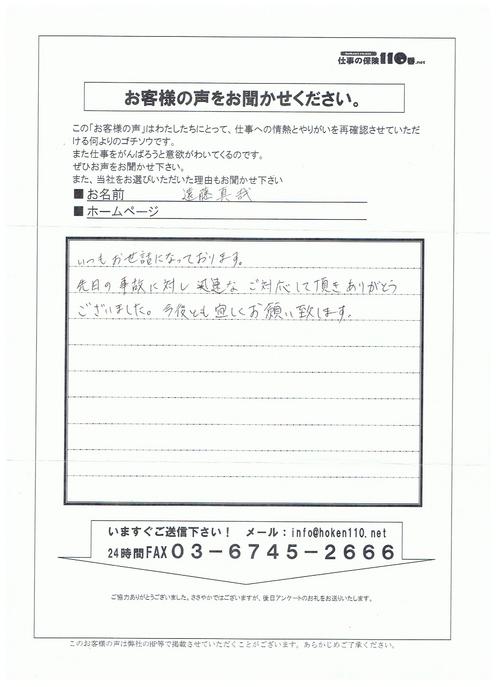 仕事の保険110番.net
お客様の声をお聞かせください。
この「お客様の声」はわたしたちにとって、仕事への情熱とやりがいを再確認させていただ
ける何よりのゴチソウです。
また仕事をがんばろうと意欲がわいてくるのです。
ぜひお声をお聞かせ下さい。
また、当社をお選びいただいた理由もお聞かせ下さい
■お名前 遠藤真哉
■ホームページ
いつもお世話になっております。
先日の事故に対し迅速なご対応して頂きありがとう
ございました。今後とも宜しくお願い致します。
いますぐご送信下さい! メール:info@hoken110.net
24時間FAX03-6745-2666
ご協力ありがとうございました。ささやかではございますが、後日アンケートのお礼をお送りいたします。
このお客様の声は弊社のHP等で掲載させていただくことがございます。あらかじめご了承ください。